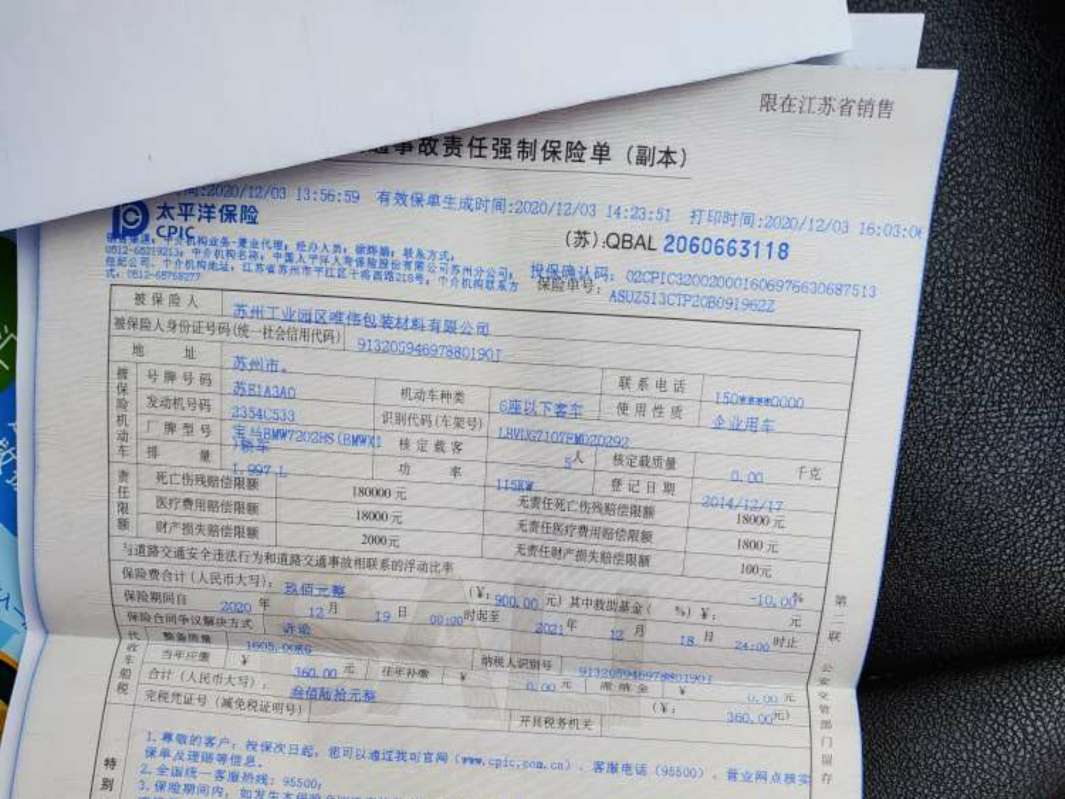 限在江苏省销售
事故责任强制保险单（副本）
间:2020/12/03 13:56:59 有效保单生成时间:2020/12/03 14:23:51 打印时间:2020/12/03 16:03:0
太平洋保险
CPIC
(苏):QBAL 2060663118
中介机构业务-兼业代理；经办人员：联系方式：
0512-65219213；中介机构名称：中国太平洋人寿保险股份有限公司苏州分公司
中介机构地址：江苏省苏州市平江区干将西路218号；中介机构联系方
式：0512-68768277
投保确认码：02CPIC320020001606976630687513
保险单号：ASUZ513CTP20B091962Z
被保险人 苏州工业园区唯伟包装材料有限公司
被保险人身份证号码(统一社会信用代码) 91320594697880190J
地址 苏州市。 联系电话 150*****0000
被保险机动车
号牌号码 苏E1A3A0 机动车种类 6座以下客车 使用性质 企业用车
发动机号码 2354C533 识别代码(车架号) LBVUG7107EM020292
厂牌型号 宝马BMW7202HS(BMWX1)轿车 核定载客 5人 核定载质量 0.00 千克
排量 1.997 L 功率 115KW 登记日期 2014/12/17
责任限额
死亡伤残赔偿限额 180000元 无责任死亡伤残赔偿限额 18000元
医疗费用赔偿限额 18000元 无责任医疗费用赔偿限额 1800元
财产损失赔偿限额 2000元 无责任财产损失赔偿限额 100元
与道路交通安全违法行为和道路交通事故相联系的浮动比率 -10.00%
保险费合计(人民币大写)：玖佰元整 (¥：900.00 元) 其中救助基金( %) ¥： 元
保险期间自 2020 年 12 月 19 日 00:00 时起至 2021 年 12 月 18 日 24:00 时止
保险合同争议解决方式 诉讼
代收车船税
整备质量 1605.00KG 纳税人识别号 91320594697880190J
当年应缴 ¥ 360.00 元 往年补缴 ¥ 0.00 元 滞纳金 ¥ 0.00 元
合计(人民币大写)：叁佰陆拾元整 (¥：360.00元)
完税凭证号（减免税证明号） 开具税务机关
特别
1.尊敬的客户：投保次日起，您可以通过我司官网（www.cpic.com.cn）、客服电话（95500）、营业网点核实
保单及理赔等信息。
2.全国统一客服热线：95500；
3.保险期间内，如发生本保险
第二联
公安交管部门留存